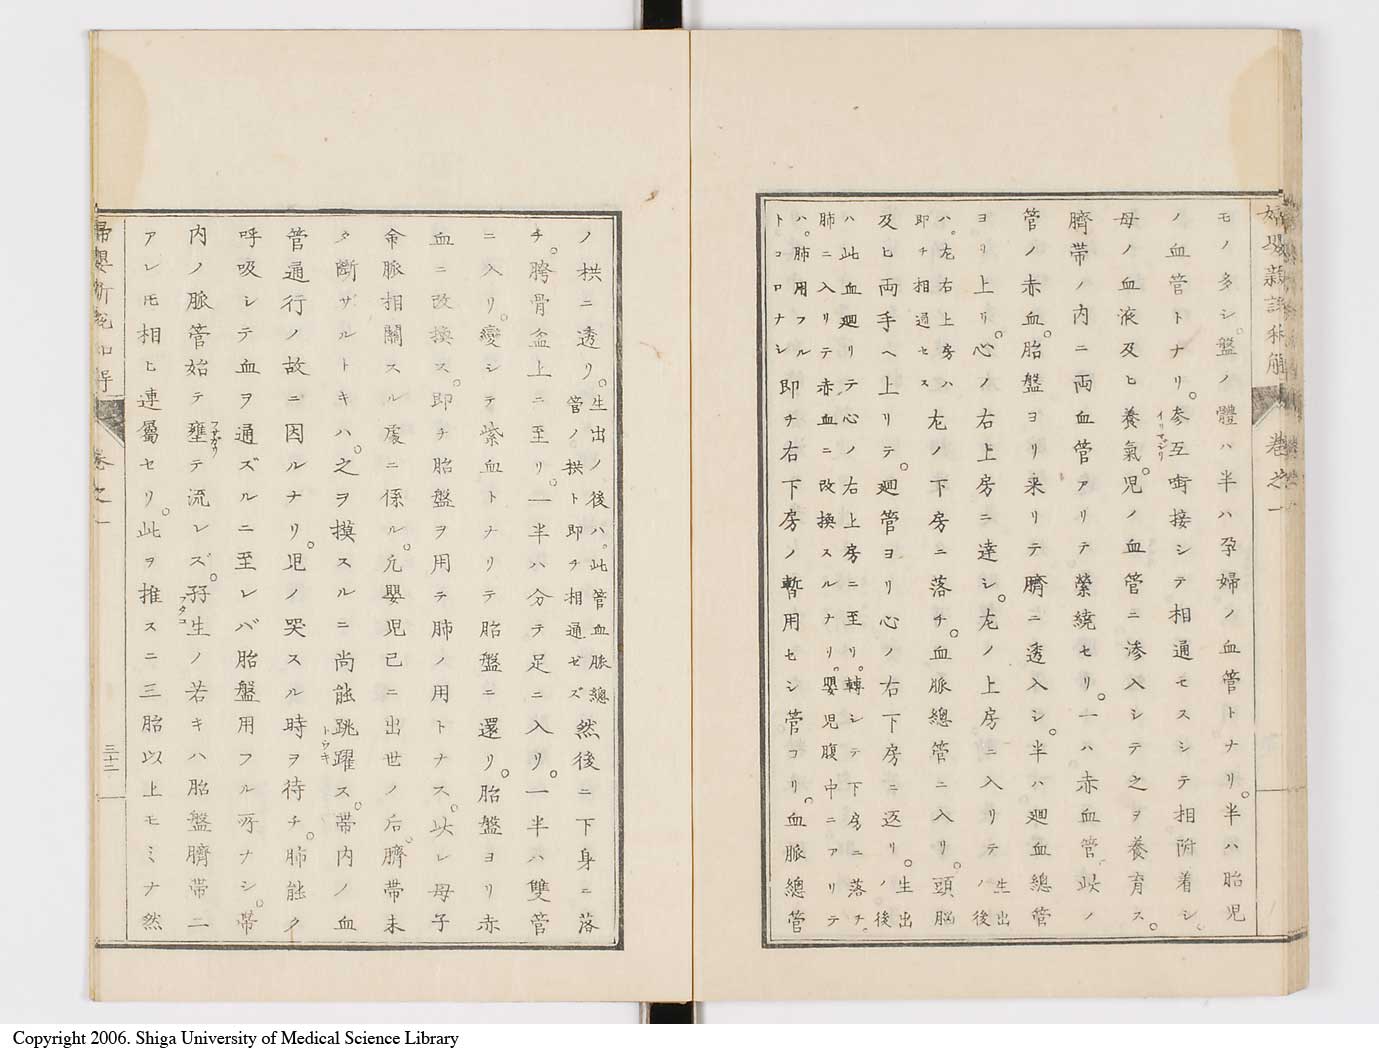 モノ多シ。盤ノ體ハ半ハ孕婦ノ血管トナリ。半ハ胎児
ノ血管トナリ。参互啮接シテ相通モスシテ相附着シ。
イリマジリ
母ノ血液及ヒ養氣。児ノ血管ニ滲入シテ之ヲ養育ス。
臍帯ノ内ニ両血管アリテ縈繞セリ。一ハ赤血管。此ノ
管ノ赤血。胎盤ヨリ来リテ臍ニ透入シ。半ハ廻血總管
ヨリ上リ。心ノ右上房ニ達シ。左ノ上房ニ入リテ
生出
ノ後
ハ。左右上房ハ
即チ相通セス
左ノ下房ニ落チ。血脈總管ニ入リ。頭脳
及ヒ両手ヘ上リテ。廻管ヨリ心ノ右下房ニ返リ。
生出
ノ後
ハ此血廻リテ心ノ右上房ニ至リ。轉シテ下房ニ落チ。
肺ニ入リテ赤血ニ改換スルナリ。嬰児腹中ニアリテ
ハ。肺用フル
トコロナシ
即チ右下房ノ暫用セシ管コリ。血脈總管
ノ栱ニ透リ。
生出ノ後ハ。此管血脈總
管ノ栱ト即チ相通ゼズ
然後ニ下身ニ落
チ。胯骨盆上ニ至リ。一半ハ分テ足ニ入リ。一半ハ雙管
ニ入リ。變シテ紫血トナリテ胎盤ニ還リ。胎盤ヨリ赤
血ニ改換ス。即チ胎盤ヲ用テ肺ノ用トナス。此レ母子
命脈相關スル處ニ係ル。凢嬰児已ニ出世ノ后。臍帯未
タ斷ザルトキハ。之ヲ摸スルニ尚能跳躍ス。帯内ノ血
トウキ
管通行ノ故ニ因ルナリ。児ノ哭スル時ヲ待チ。肺能ク
呼吸シテ血ヲ通ズルニ至レバ胎盤用フル所ナシ。帯
内ノ脈管始テ壅テ流レズ。孖生ノ若キハ胎盤臍帯二
フサガリ
フタコ
アレ𪜈相ヒ連屬セリ。此ヲ推スニ三胎以上モミナ然
巻之一
三十二
巻之一
Copyright 2006. Shiga University of Medical Science Library